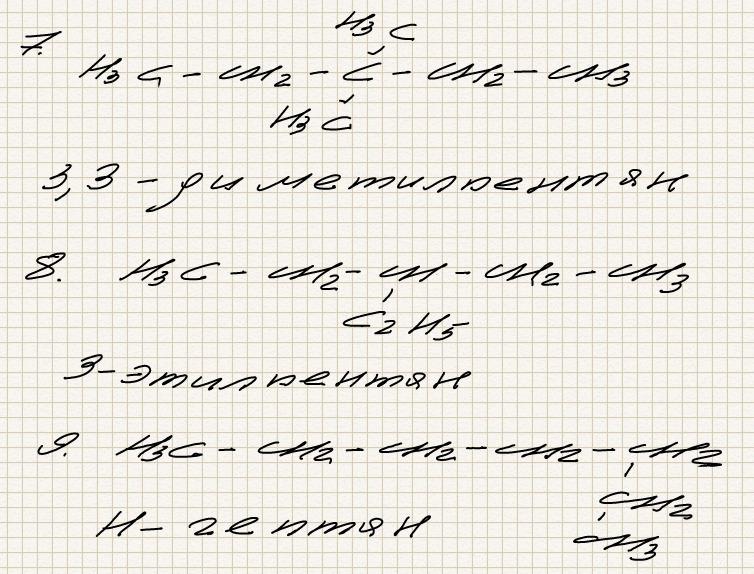 7.
H₃C
H₃C - CH₂ - C - CH₂ - CH₃
H₃C
3,3 - диметилпентан
8. H₃C - CH₂ - CH - CH₂ - CH₃
C₂H₅
3-этилпентан
9. H₃C - CH₂ - CH₂ - CH₂ - CH₂
CH₂
CH₃
н - гептан